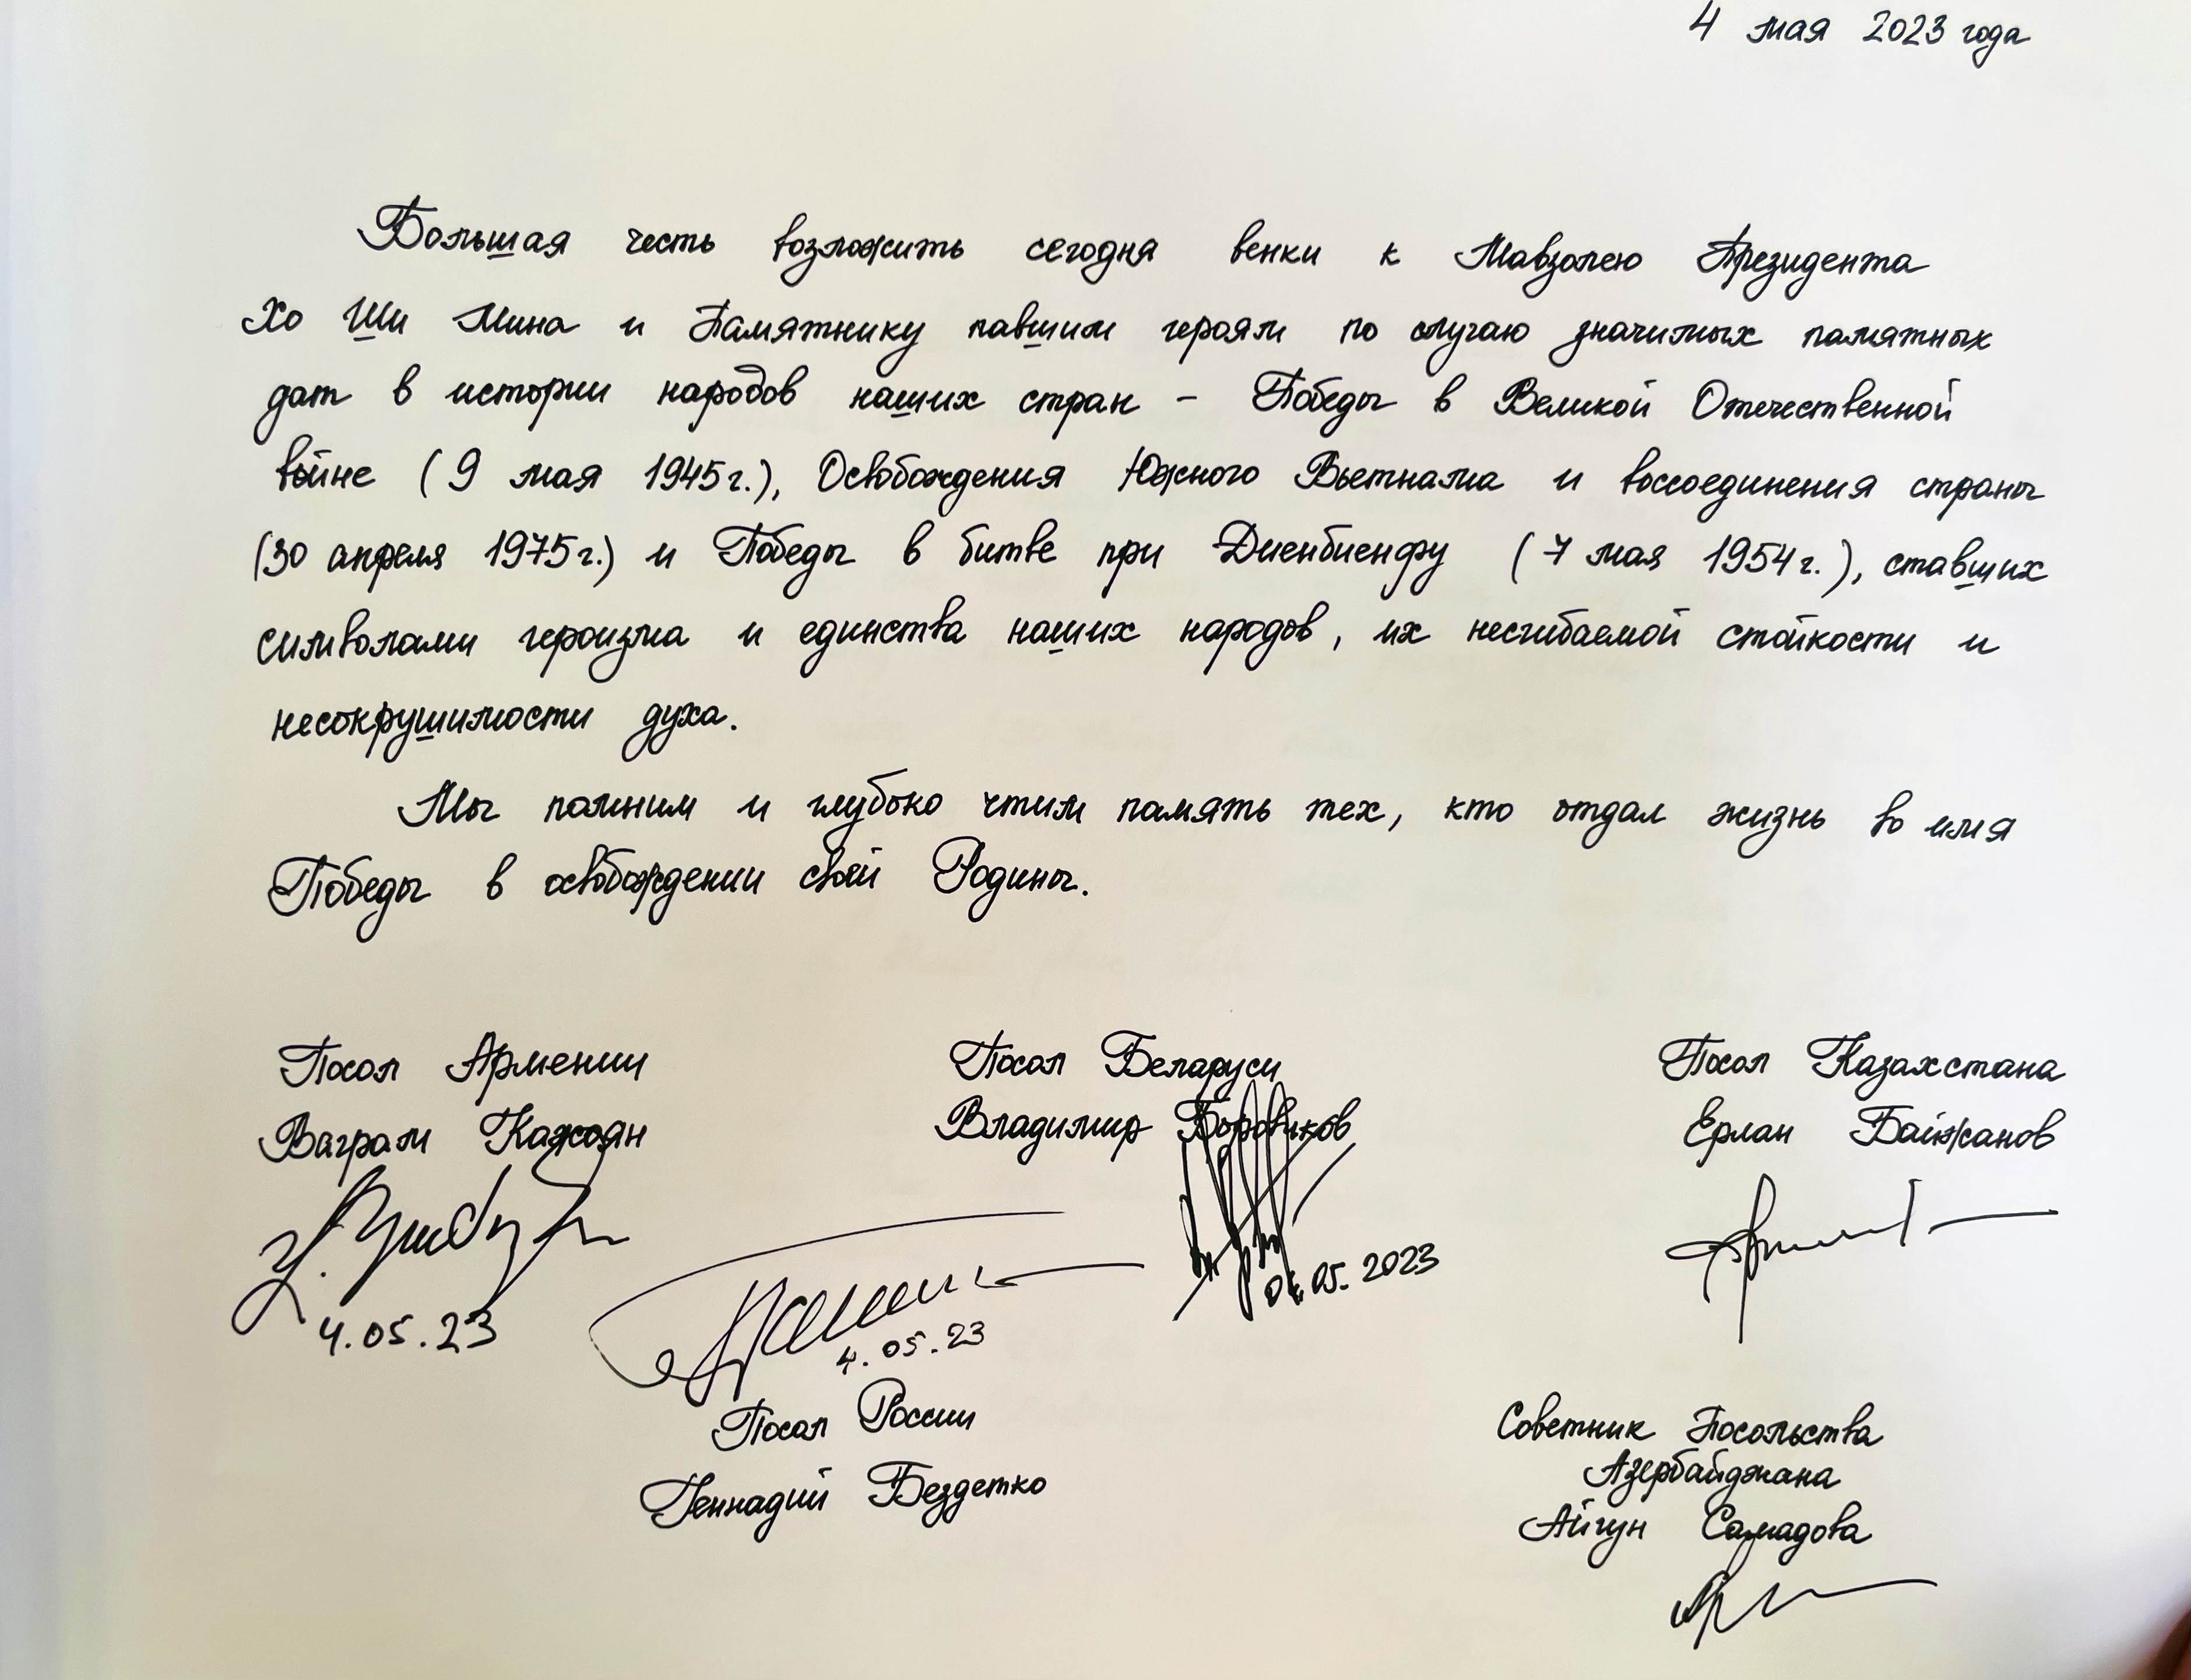 4 мая 2023 года
Большая честь возложить сегодня венки к Мавзолею Президента
Хо Ши Мина и Памятнику павшим героям по случаю значимых памятных
дат в истории народов наших стран - Победы в Великой Отечественной
войне (9 мая 1945г.), Освобождения Южного Вьетнама и воссоединения страны
(30 апреля 1975г.) и Победы в битве при Диенбиенфу (7 мая 1954г.), ставших
символами героизма и единства наших народов, их несгибаемой стойкости и
несокрушимости духа.
Мы помним и глубоко чтим память тех, кто отдал жизнь во имя
Победы в освобождении своей Родины.
Посол Армении
Ваграм Кажоян
4.05.23
Посол Беларуси
Владимир Боровиков
04.05.2023
Посол Казахстана
Ерлан Байжанов
4.05.23
Посол России
Геннадий Бездетко
Советник Посольства
Азербайджана
Айгун Самадова